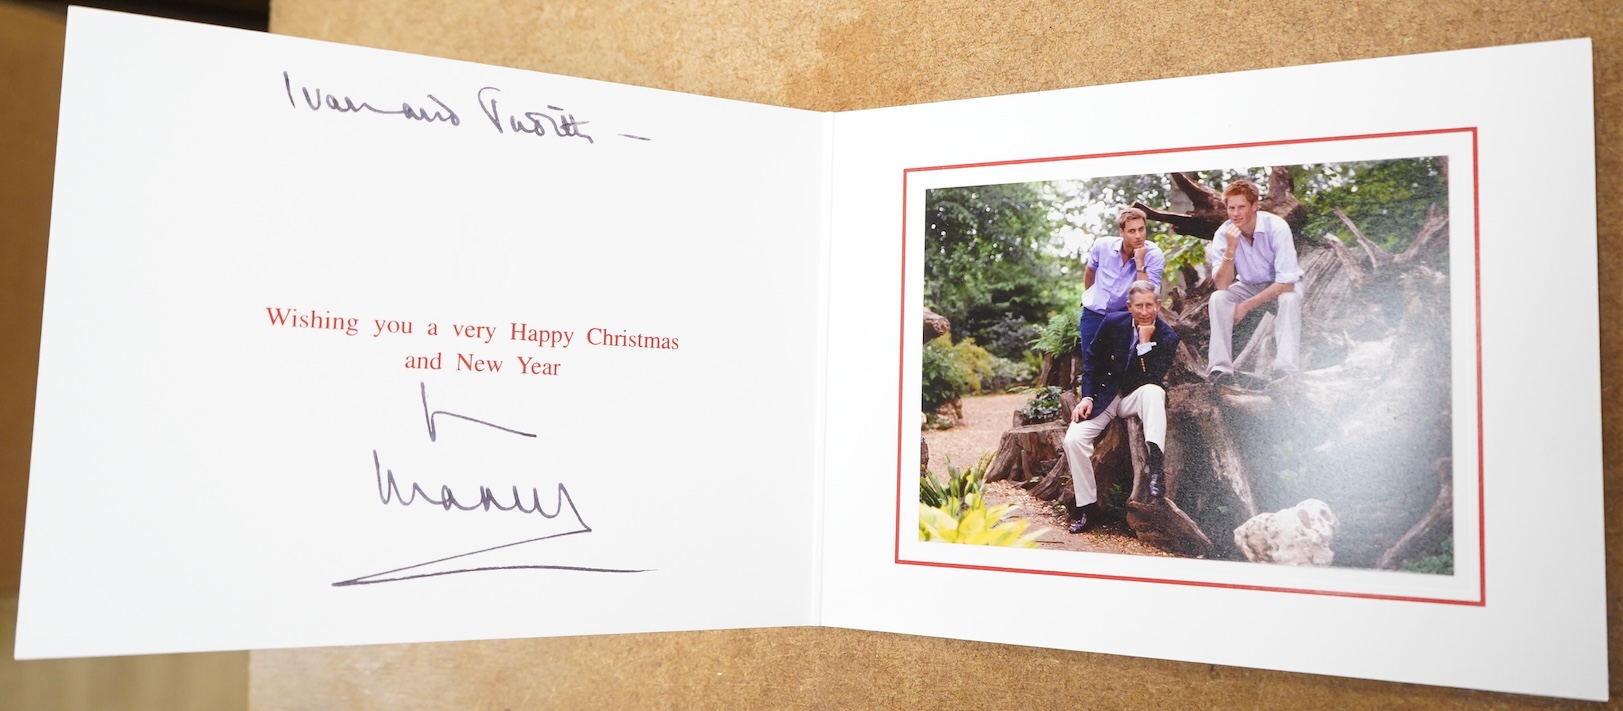 Ivan and Judith —
Wishing you a very Happy Christmas
and New Year
from
Charles